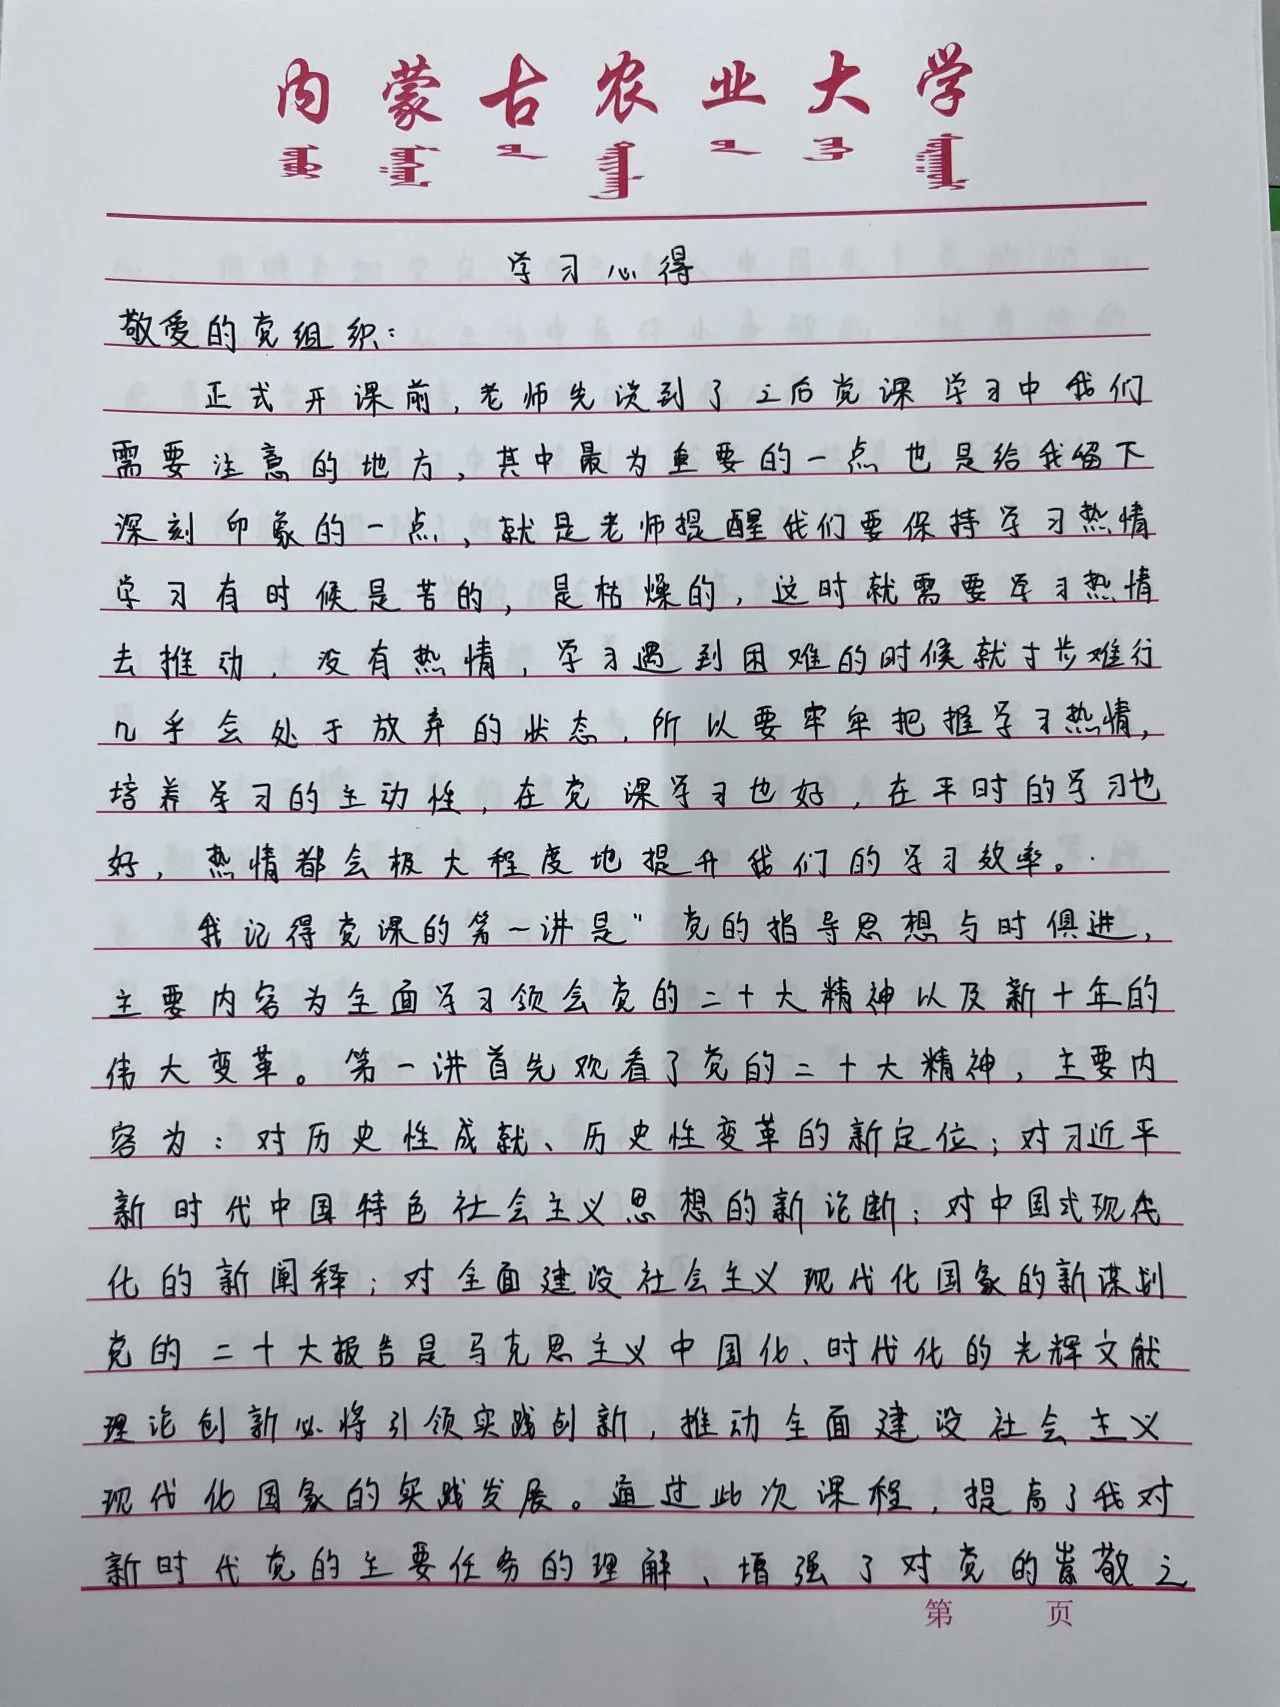 内蒙古农业大学
学习心得
敬爱的党组织：
正式开课前，老师先说到了之后党课学习中我们
需要注意的地方，其中最为重要的一点也是给我留下
深刻印象的一点，就是老师提醒我们要保持学习热情
学习有时候是苦的，是枯燥的，这时就需要学习热情
去推动，没有热情，学习遇到困难的时候就寸步难行
几乎会处于放弃的状态，所以要牢牢把握学习热情，
培养学习的主动性，在党课学习也好，在平时的学习也
好，热情都会极大程度地提升我们的学习效率。
我记得党课的第一讲是“党的指导思想与时俱进，
主要内容为全面学习领会党的二十大精神以及新十年的
伟大变革。第一讲首先观看了党的二十大精神，主要内
容为：对历史性成就、历史性变革的新定位；对习近平
新时代中国特色社会主义思想的新论断；对中国式现代
化的新阐释；对全面建设社会主义现代化国家的新谋划
党的二十大报告是马克思主义中国化、时代化的光辉文献
理论创新必将引领实践创新，推动全面建设社会主义
现代化国家的实践发展。通过此次课程，提高了我对
新时代党的主要任务的理解、增强了对党的崇敬之
第 页